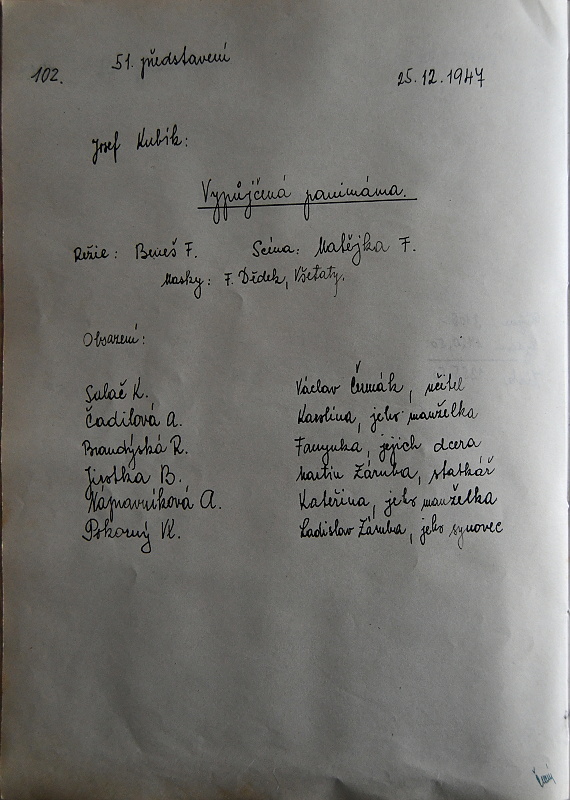 102. 51. představení 25.12.1947
Josef Kubík:
Vypůjčená panimáma.
Režie: Beneš F. Scéna: Matějka F.
Masky: F. Dědek, Všetaty.
Obsazení:
Sulač K. Václav Čermák, učitel
Čadilová A. Karolina, jeho manželka
Brandýská R. Fanynka, jejich dcera
Jirotka B. Martin Záruba, statkář
Nápravníková A. Kateřina, jeho manželka
Pokorný Vl. Ladislav Záruba, jeho synovec